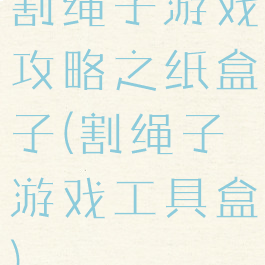 割绳子游戏
攻略之纸盒
子(割绳子
游戏工具盒
)